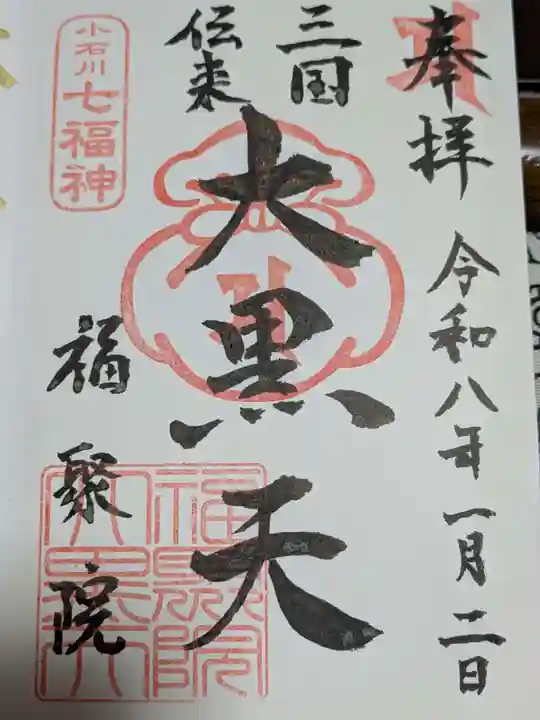 奉拝
令和八年一月二日
三国
伝来
大黒天
小石川
七福神
福聚院
福聚院
大黒天